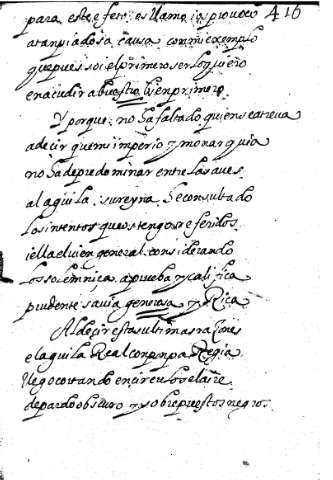 416
para este efeto os llamo ios provoco
a tan piadosa causa con mi exemplo
que pues soi el primero ser los quiero
en acudir a buestro bien primero
Y porque no ha faltado quien se atreva
a decir que mi imperio y monarquia
no ha de predominar entre las aves
al aguila su reyna he consultado
los intentos que os tengo referidos
i ella el bien general considerando
los solemniça aprueba y califica
prudente savia generosa y Rica
Al decir estas ultimas raçones
el aguila Real con pompa Regia
llego cortando en circulos el aire
de pardo obscuro y sobrepuestos negros